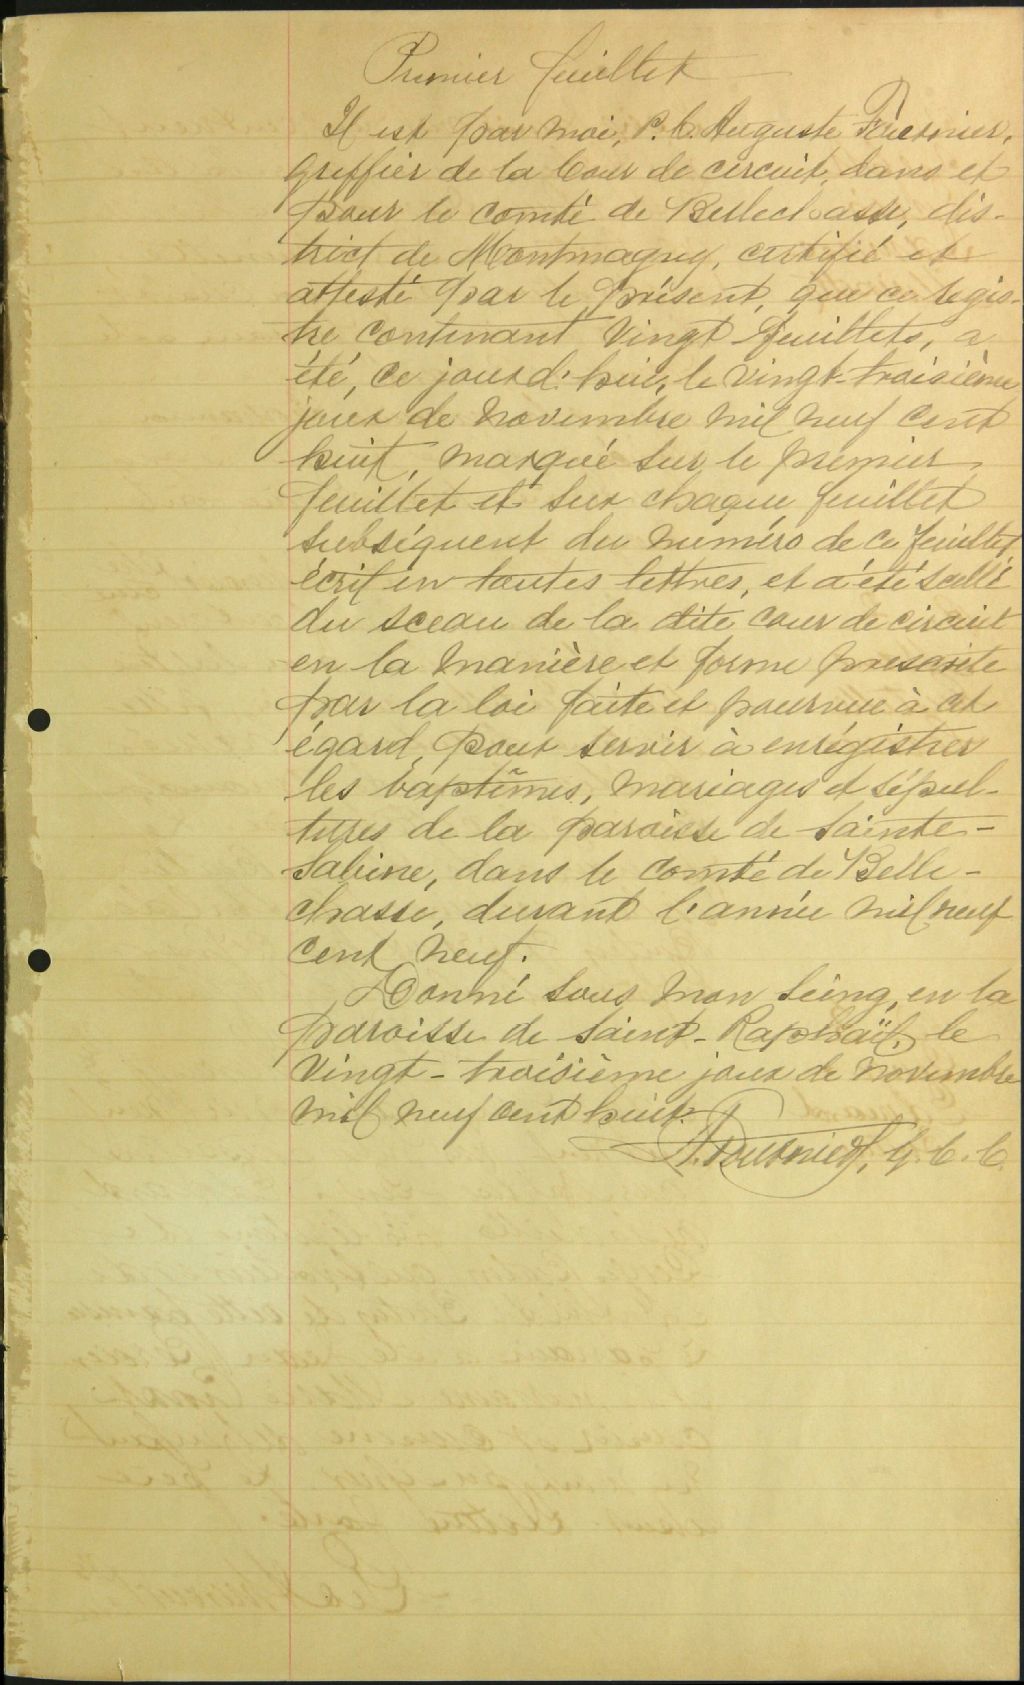 Premier feuillet
Il est par moi, P. C. Auguste Fournier,
Greffier de la Cour de circuit, dans et
pour le comté de Bellechasse, dis-
trict de Montmagny, certifié et
attesté par le présent, que ce régis-
tre contenant vingt feuillets, a
été, ce jourd'hui, le vingt-troisième
jour de novembre mil neuf cent
huit, marqué sur le premier
feuillet et sur chaque feuillet
subséquent du numéro de ce feuillet
écrit en toutes lettres, et a été scellé
du sceau de la dite cour de circuit
en la manière et forme prescrite
par la loi faite et pourvue à cet
égard, pour servir à enrégistrer
les baptêmes, mariages et sépul-
tures de la paroisse de Sainte-
Sabine, dans le comté de Belle-
chasse, durant l'année mil neuf
cent neuf.
Donné sous mon seing, en la
paroisse de Saint-Raphaël, le
vingt-troisième jour de novembre
mil neuf cent huit.
A. Fournier, G. C. C.